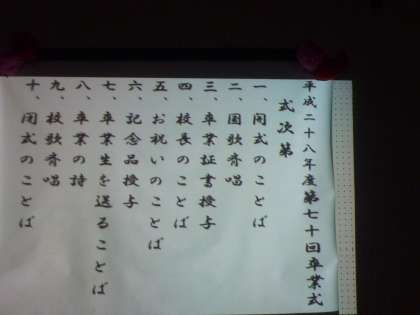 平成二十八年度第七十回卒業式
式次第
一、開式のことば
二、国歌斉唱
三、卒業証書授与
四、校長のことば
五、お祝いのことば
六、記念品授与
七、卒業生を送ることば
八、卒業の詩
九、校歌斉唱
十、閉式のことば